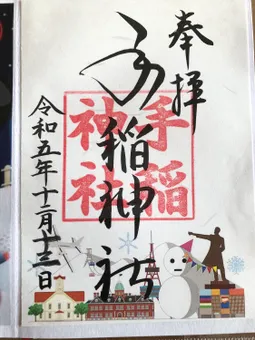 奉拝
手稲神社
手稲神社
令和五年十二月十三日